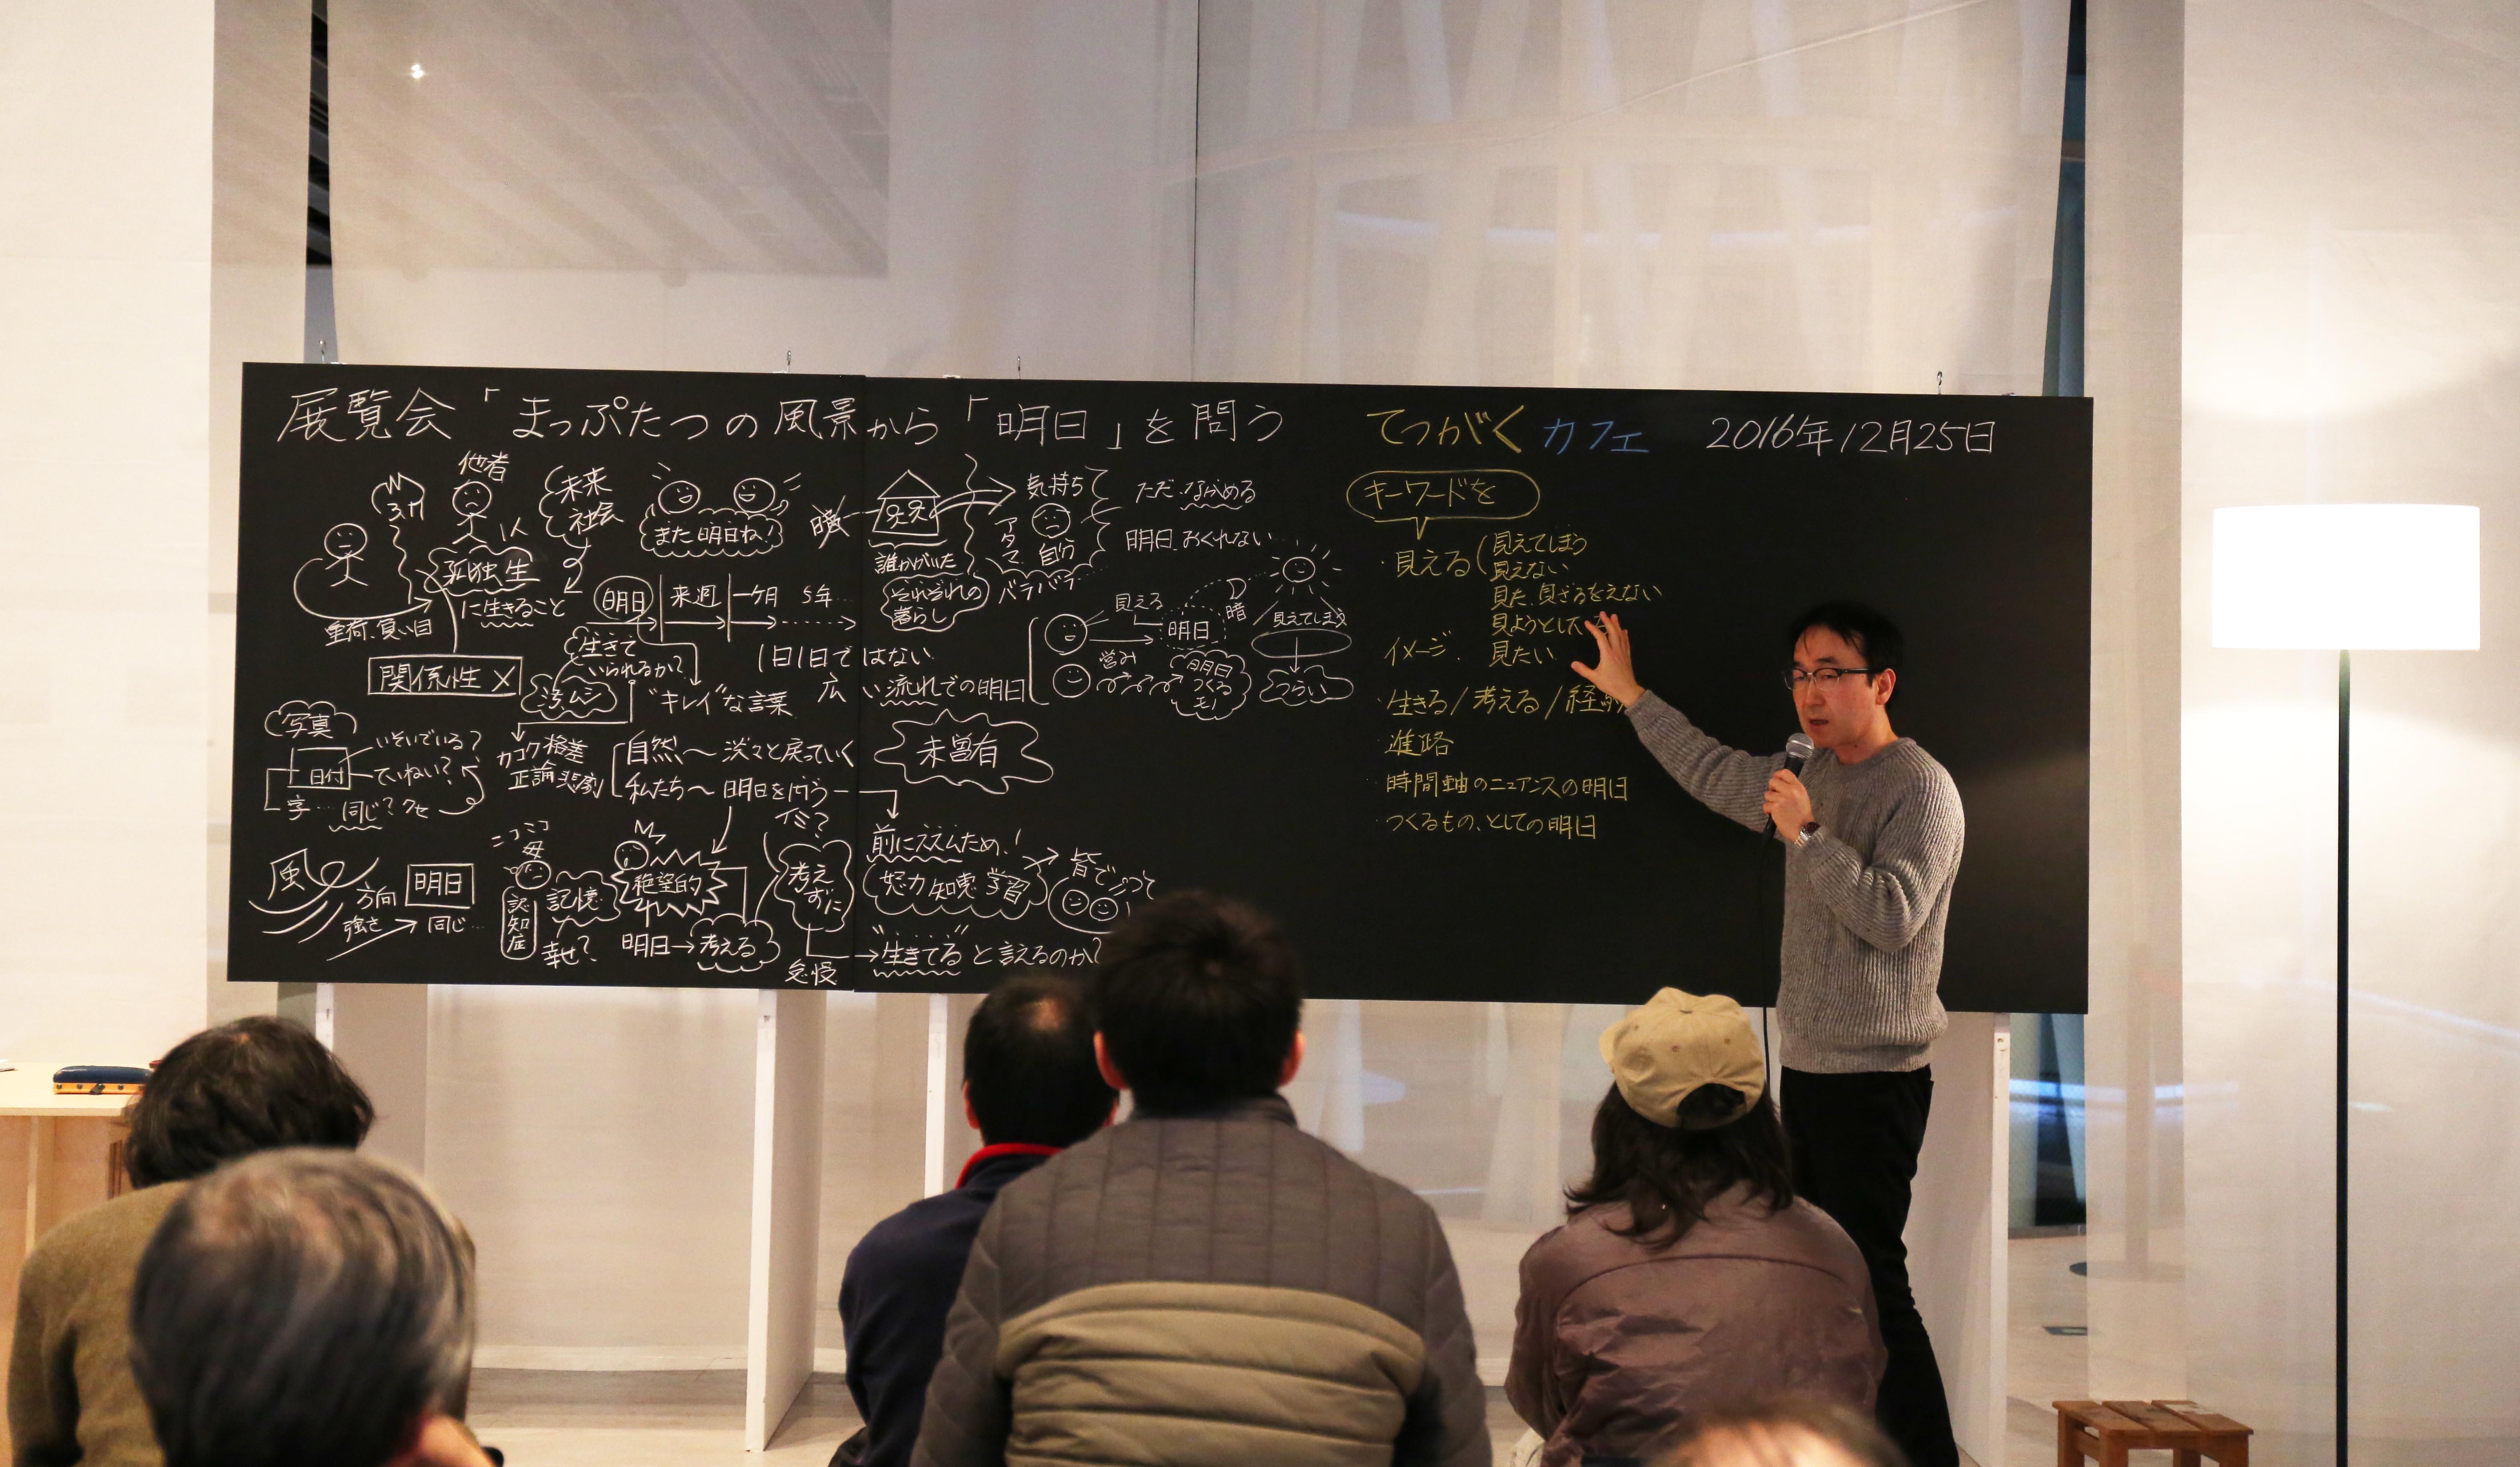 展覧会「まっぷたつの風景から「明日」を問う
てつがくカフェ 2016年12月25日
他者
3.11
孤独
生
に生きること
重荷、負い目
関係性 ×
未来
社会
また明日ね!
明日 来週 一ヶ月 5年…
生きて
いられるか?
"キレイ"な言葉
1日1日ではない
広い流れでの明日
カコク格差
正論 悲劇
自然〜淡々と戻っていく
私たち〜明日を問う
イミ?
写真
日付
いそいでいる?
ていねい?
字… 同じ? クセ
風
方向
強さ
明日
同じ…
ニコニコ
母
認知症
記憶
幸せ?
絶望的
明日→考える
考えずに
怠慢
誰かがいた
それぞれの
暮らし
気持ち
アタマ
自分
バラバラ
ただながめる
明日、おくれない…
見える
明日
暗
見えてしまう
営み
明日
つくる
も!
つらい
未曽有
前にススムため!
努力 知恵 学習
皆で
"生きてる"と言えるのか?
キーワードを
・見える(見えてしまう
見えない
見た、見ざるをえない
見ようとした
イメージ. 見たい
・生きる/考える/経験
・進路
・時間軸のニュアンスの明日
・つくるもの、としての明日